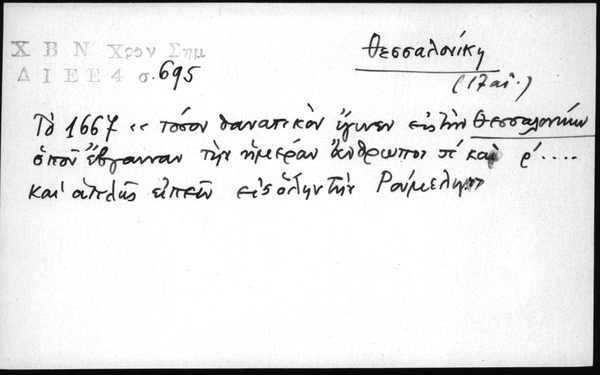 Χ Β Ν Χρον Σημ
Δ Ι Ε Ε 4 σ. 695
Θεσσαλονίκη
(17 αἰ.)
Τὸ 1667 « τόσον θανατικὸν ἔγινεν εἰς τὴν Θεσσαλονίκην
ὁποῦ ἔβγαιναν τὴν ἡμέραν ἄνθρωποι π' καὶ ρ' ....
καὶ ἁπλῶς εἰπεῖν εἰς ὅλην τὴν Ρούμελην»